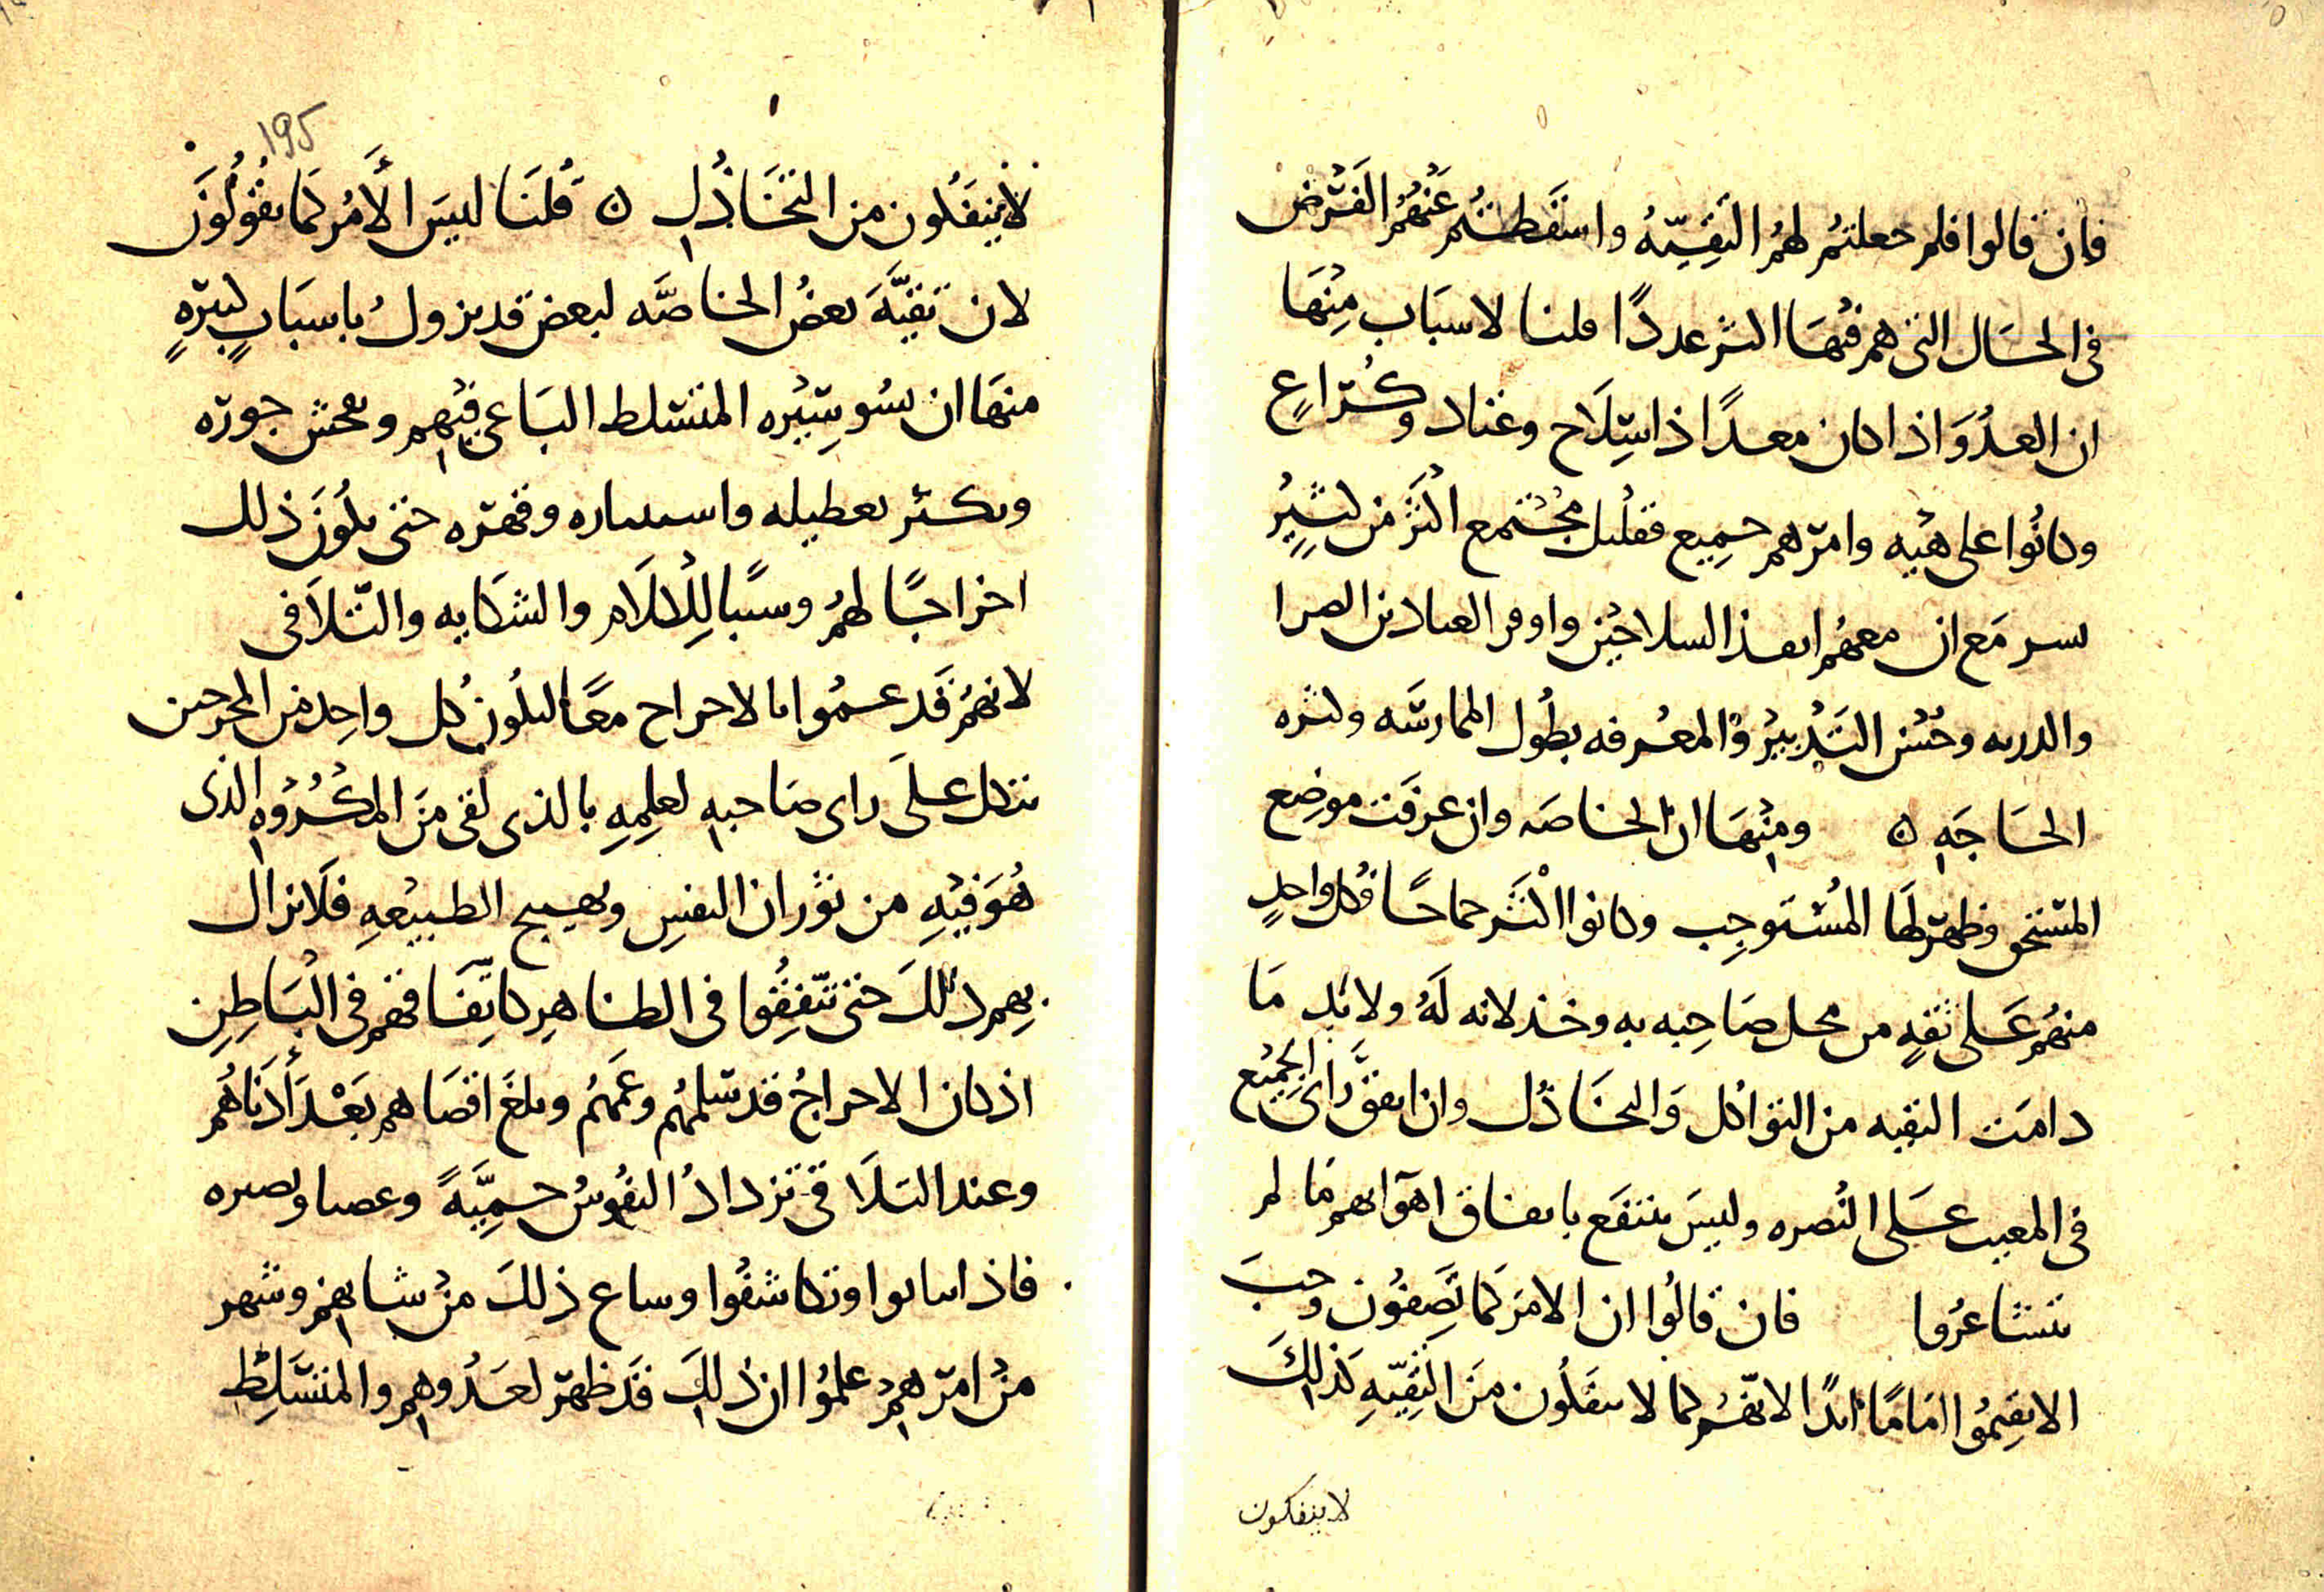 فان قالوا فلم جعلتم لهم التقيه واسقطتم عنهم الفرض
في الحال التي هم فيها اكثر عددا قلنا لاسباب منها
ان العدو اذا كان معدا ذا سلاح وعتاد وكراع
وكانوا على هيه وامرهم جميع فقليل مجتمع اكثر من كثير
نشر مع ان معهم ابعد السلاحين واوفر العتادين الضرا
والدربه وحسن التدبير والمعرفه بطول الممارسه وكثره
الحاجه ه ومنها ان الخاصه وان عرفت موضع
المستحق وظهر لها المستوجب وكانوا اكثر جماحا فكل واحد
منهم على ثقه من محل صاحبه به وخذلانه له ولا بد ما
دامت التقيه من التواكل والتخاذل وان اتفق راى الجميع
في المغيب على النصره وليس ينتفع باتفاق اهوايهم ما لم
يتشاعروا فان قالوا ان الامر كما تصفون وجب
الا يقيموا اماما ابدا لانهم كما لا ينفكون من التقيه كذلك
لا ينفكون
195
لا ينفكون من التخاذل ه قلنا ليس الامر كما يقولون
لان تقيه بعض الخاصه لبعض قد يزول باسباب كثيره
منها ان تسو سيره المتسلط الباغي فيهم ويفحش جوره
ويكثر تعطيله واستيثاره وقهره حتى يكون ذلك
اخراجا لهم وسببا للكلام والشكايه والتلاقى
لانهم قد عموا بالاحراج معا ليكون كل واحد من المحرجين
يتكل على راى صاحبه لعلمه بالذى لقى من المكروه الذى
هو فيه من ثوران النفس وتهييج الطبيعه فلا يزال
بهم ذلك حتى يتفقوا في الظاهر كاتفاقهم في الباطن
اذ كان الاحراج قد شملهم وعمهم وبلغ اقصاهم بعد ادناهم
وعند التلاقى تزداد النفوس حميه وغضبا وبصيره
فاذا تباثوا وتكاشفوا وساع ذلك من شانهم وشهر
من امرهم علموا ان ذلك قد ظهر لعدوهم والمتسلط